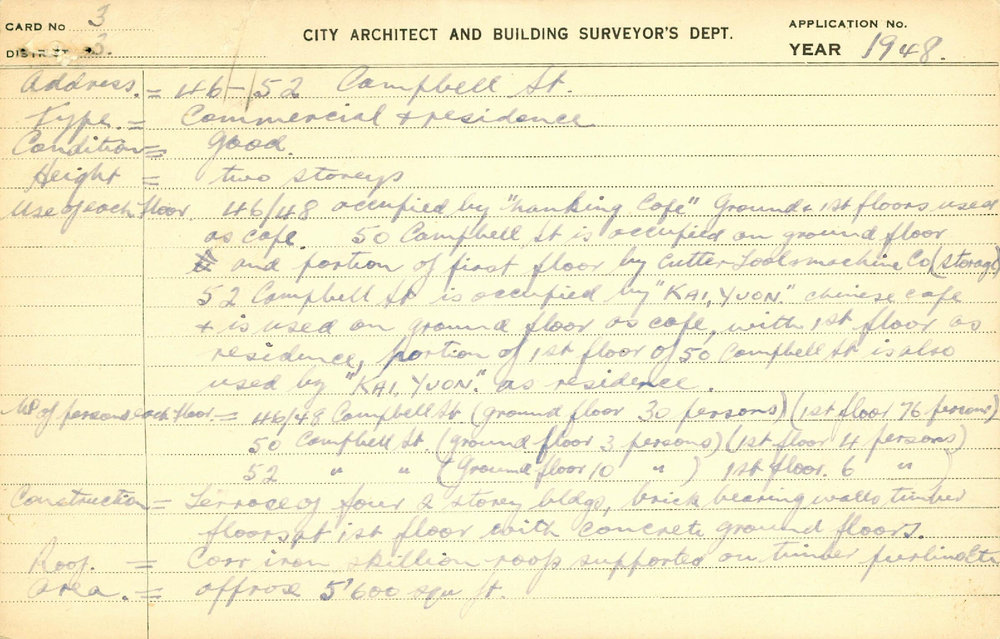 CARD No 3
DISTRICT 3.
CITY ARCHITECT AND BUILDING SURVEYOR'S DEPT.
APPLICATION No.
YEAR 1948.
Address. = 46-52 Campbell St.
Type. = Commercial & residence
Condition = Good.
Height = two storeys
Use of each floor 46/48 occupied by "Nanking Cafe" Ground & 1st floors used
as cafe. 50 Campbell St is occupied on ground floor
and portion of first floor by Cutter Tool & machine Co (storage)
52 Campbell St is occupied by "KAI, YUON." chinese cafe
& is used on ground floor as cafe, with 1st floor as
residence, portion of 1st floor of 50 Campbell St is also
used by "KAI, YUON." as residence.
No of persons each floor = 46/48 Campbell St (ground floor 30 persons) (1st floor 76 persons)
50 Campbell St. (ground floor 3 persons) (1st floor 4 persons)
52 " " (Ground floor 10 " ) 1st floor. 6 " )
Construction = Terrose of four 2 storey bldgs, brick bearing walls timber
floors at 1st floor with concrete ground floors.
Roof. = Corr iron skillion roofs supported on timber purlins etc
Area. = approx 5'600 squ ft.